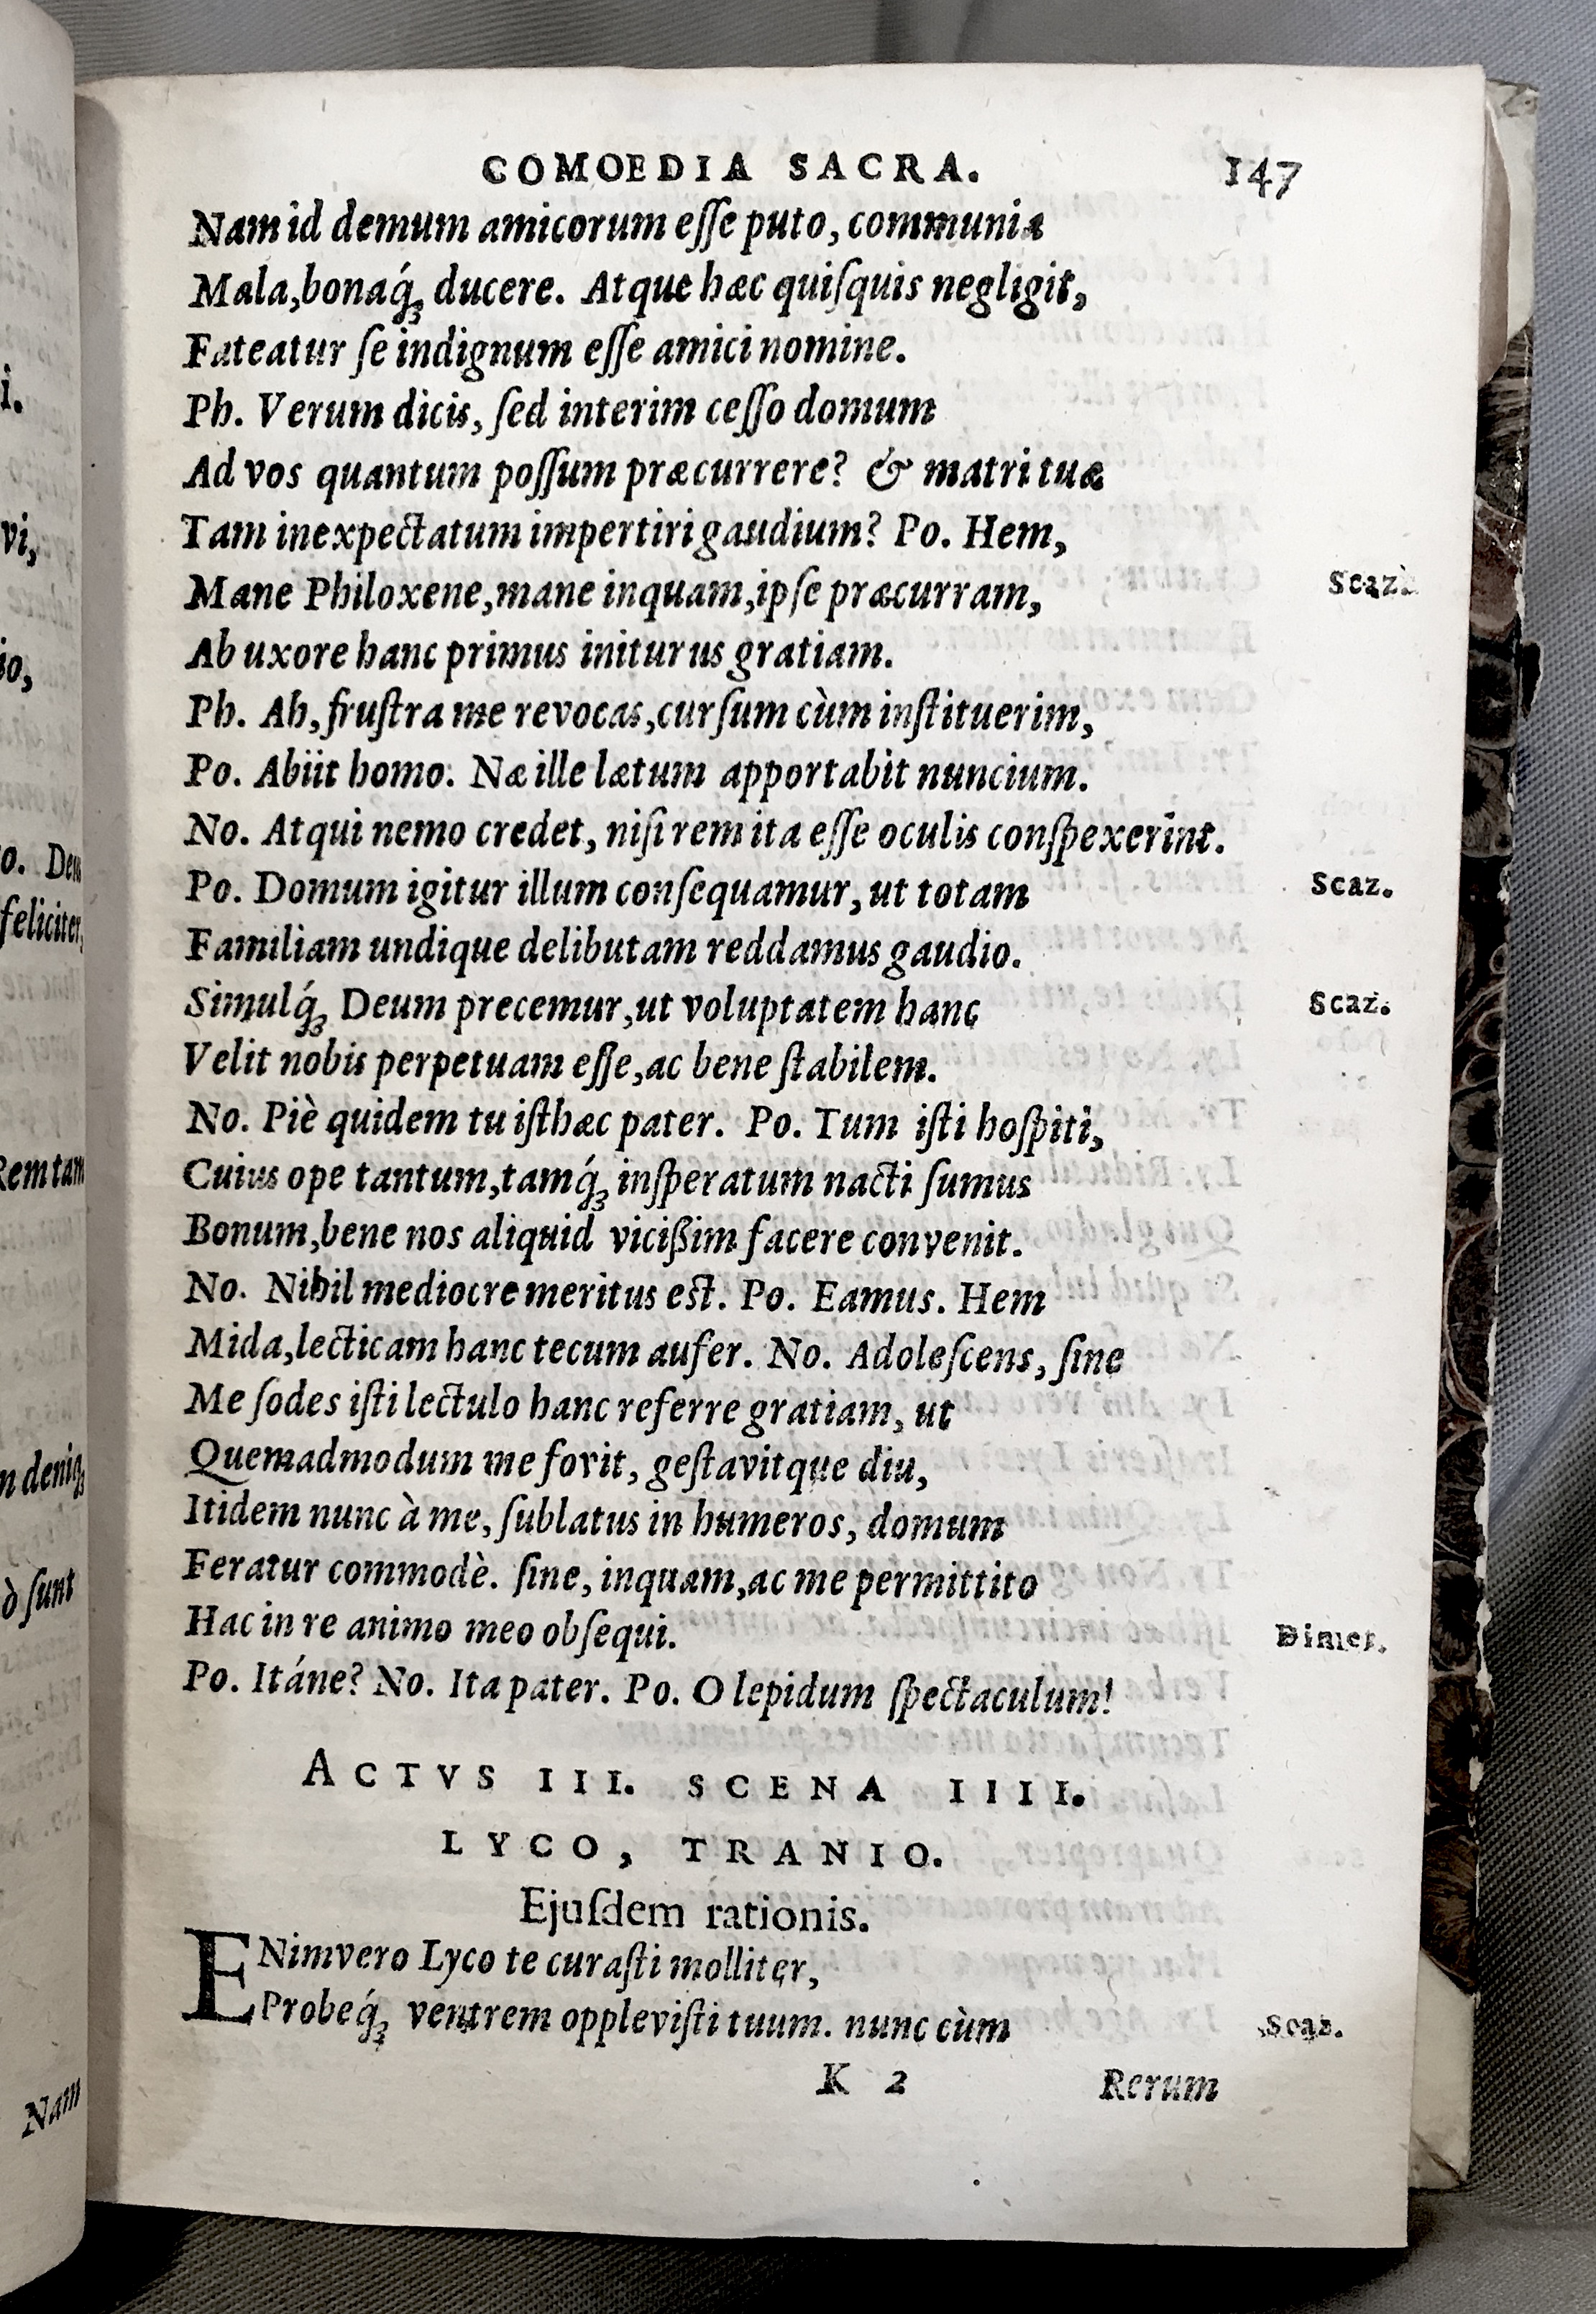 COMOEDIA SACRA. 147
Nam id demum amicorum eſſe puto, communia
Mala,bonaq́ꝫ ducere. Atque hæc quiſquis negligit,
Fateatur ſe indignum eſſe amici nomine.
Ph. Verum dicis, ſed interim ceſſo domum
Ad vos quantum poſſum præcurrere? & matri tuæ
Tam inexpectatum impertiri gaudium? Po. Hem,
Mane Philoxene,mane inquam,ipſe præcurram, Scaz.
Ab uxore hanc primus initurus gratiam.
Ph. Ah, fruſtra me revocas,curſum cùm inſtituerim,
Po. Abiit homo. Næ ille lætum apportabit nuncium.
No. Atqui nemo credet, niſi rem ita eſſe oculis conſpexerint.
Po. Domum igitur illum conſequamur, ut totam Scaz.
Familiam undique delibutam reddamus gaudio.
Simulq́ꝫ Deum precemur,ut voluptatem hanc Scaz.
Velit nobis perpetuam eſſe,ac bene ſtabilem.
No. Piè quidem tu iſthæc pater. Po. Tum iſti hoſpiti,
Cuius ope tantum,tamq́ꝫ inſperatum nacti ſumus
Bonum,bene nos aliquid vicißim facere convenit.
No. Nihil mediocre meritus est. Po. Eamus. Hem
Mida,lecticam hanc tecum aufer. No. Adoleſcens, ſine
Me ſodes iſti lectulo hanc referre gratiam, ut
Quemadmodum me fovit, geſtavitque diu,
Itidem nunc à me, ſublatus in humeros, domum
Feratur commodè. ſine, inquam,ac me permittito
Hac in re animo meo obſequi. Dimet.
Po. Itáne? No. Ita pater. Po. O lepidum ſpectaculum!
ACTVS III. SCENA IIII.
LYCO, TRANIO.
Ejuſdem rationis.
ENimvero Lyco te curaſti molliter,
Probeq́ꝫ ventrem oppleviſti tuum. nunc cùm Scaz.
K 2 Rerum
i.
vi,
io,
o. Deu
feliciter,
Rem tam
n deniqꝫ
ò ſunt
Nam